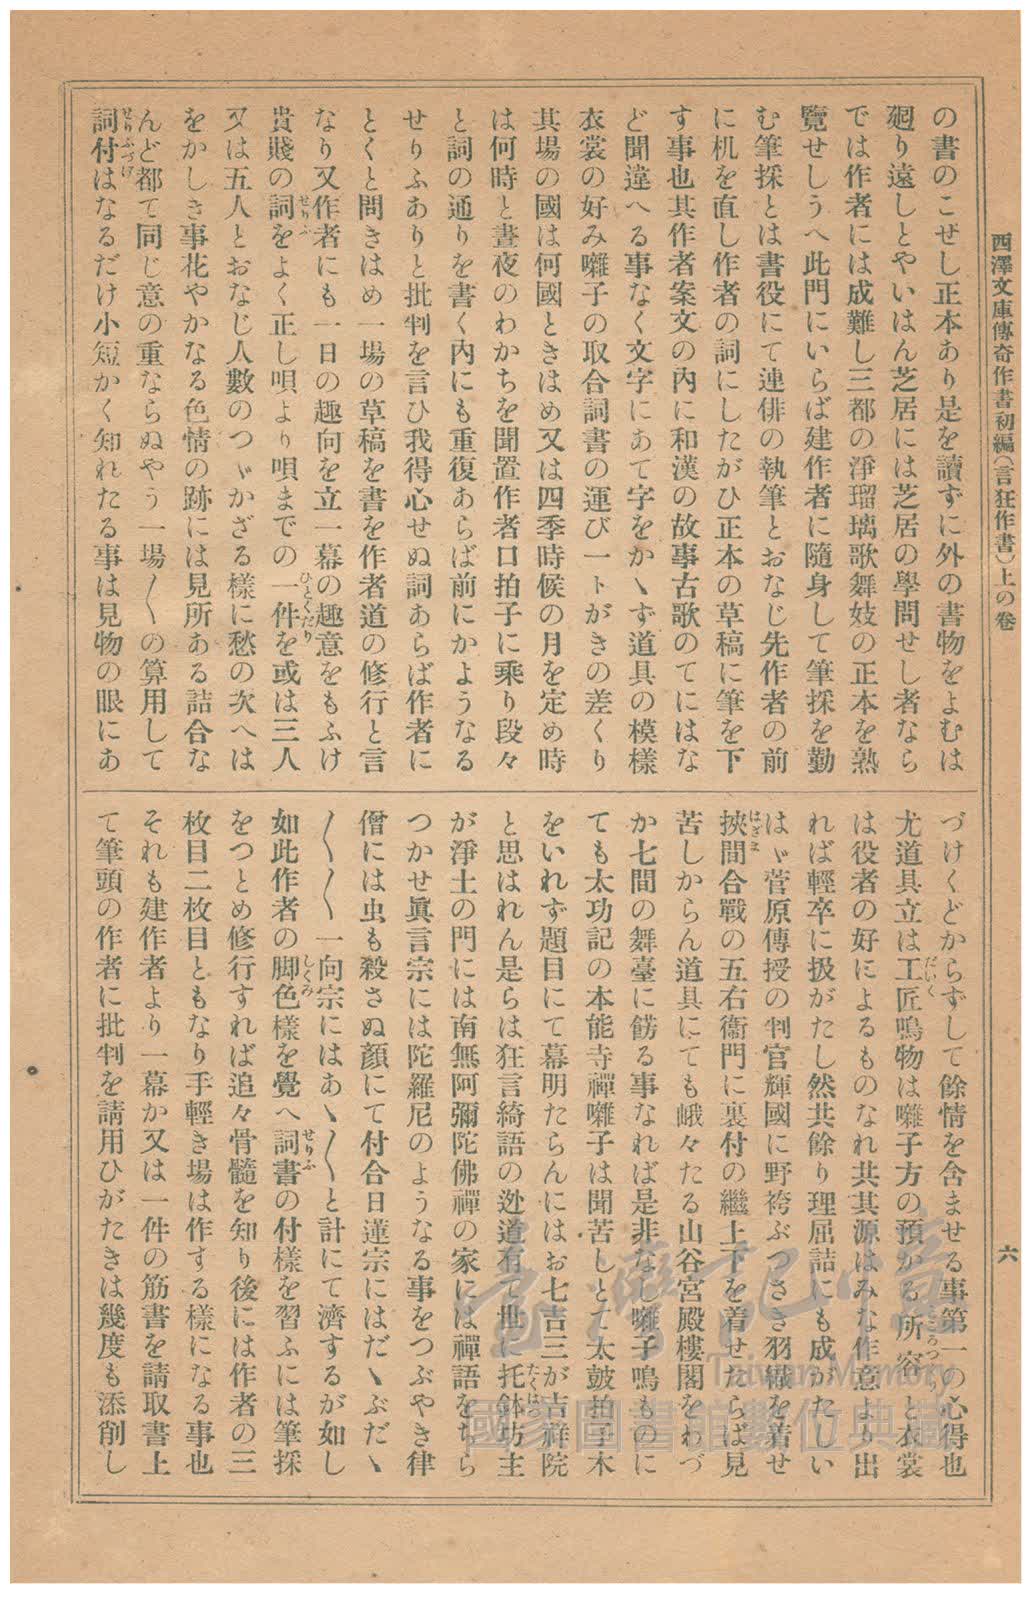 西澤文庫傳奇作書初編(言狂作書)上の卷
六
の書のこせし正本あり是を讀ずに外の書物をよむは
廻り遠しとやいはん芝居には芝居の學問せし者なら
では作者には成難し三都の淨瑠璃歌舞妓の正本を熟
覽せしうへ此門にいらば建作者に隨身して筆採を勤
む筆採とは書役にて連俳の執筆とおなじ先作者の前
に机を直し作者の詞にしたがひ正本の草稿に筆を下
す事也其作者案文の內に和漢の故事古歌のてにはな
ど聞違へる事なく文字にあて字をかゝず道具の模樣
衣裳の好み囃子の取合詞書の運び一トがきの差くり
其場の國は何國ときはめ又は四季時候の月を定め時
は何時と晝夜のわかちを聞置作者口拍子に乘り段々
と詞の通りを書く內にも重復あらば前にかようなる
せりふありと批判を言ひ我得心せぬ詞あらば作者に
とくと問きはめ一場の草稿を書を作者道の修行と言
なり又作者にも一日の趣向を立一幕の趣意をもふけ
貴賤の詞をよく正し唄より唄までの一件を或は三人
又は五人とおなじ人數のつゞかざる樣に愁の次へは
をかしき事花やかなる色情の跡には見所ある詰合な
んど都て同じ意の重ならぬやう一場〳〵の算用して
詞付はなるだけ小短かく知れたる事は見物の眼にあ
づけくどからずして餘情を含ませる事第一の心得也
尤道具立は工匠鳴物は囃子方の預かる所容と衣裳
は役者の好によるものなれ共其源はみな作意より出
れば輕卒に扱がたし然共餘り理屈詰にも成がたしい
はゞ菅原傳授の判官輝國に野袴ぶつさき羽織を着せ
挾間合戰の五右衞門に裏付の繼上下を着せたらば見
苦しからん道具にても峨々たる山谷宮殿樓閣をわづ
か七間の舞臺に餝る事なれば是非なし囃子鳴ものに
ても太功記の本能寺禪囃子は聞苦しとて太鼓拍子木
をいれず題目にて幕明たらんにはお七吉三が吉祥院
と思はれん是らは狂言綺語の迯道有て世に托鉢坊主
が淨土の門には南無阿彌陀佛禪の家には禪語をちら
つかせ眞言宗には陀羅尼のようなる事をつぶやき律
僧には虫も殺さぬ顏にて付合日蓮宗にはだゝぶだゝ
〳〵〳〵一向宗にはあゝ〳〵と計にて濟するが如し
如此作者の脚色樣を覺へ詞書の付樣を習ふには筆採
をつとめ修行すれば追々骨髓を知り後には作者の三
枚目二枚目ともなり手輕き場は作する樣になる事也
それも建作者より一幕か又は一件の筋書を請取書上
て筆頭の作者に批判を請用ひがたきは幾度も添削し
臺灣記憶
Taiwan Memory
國家圖書館數位典藏